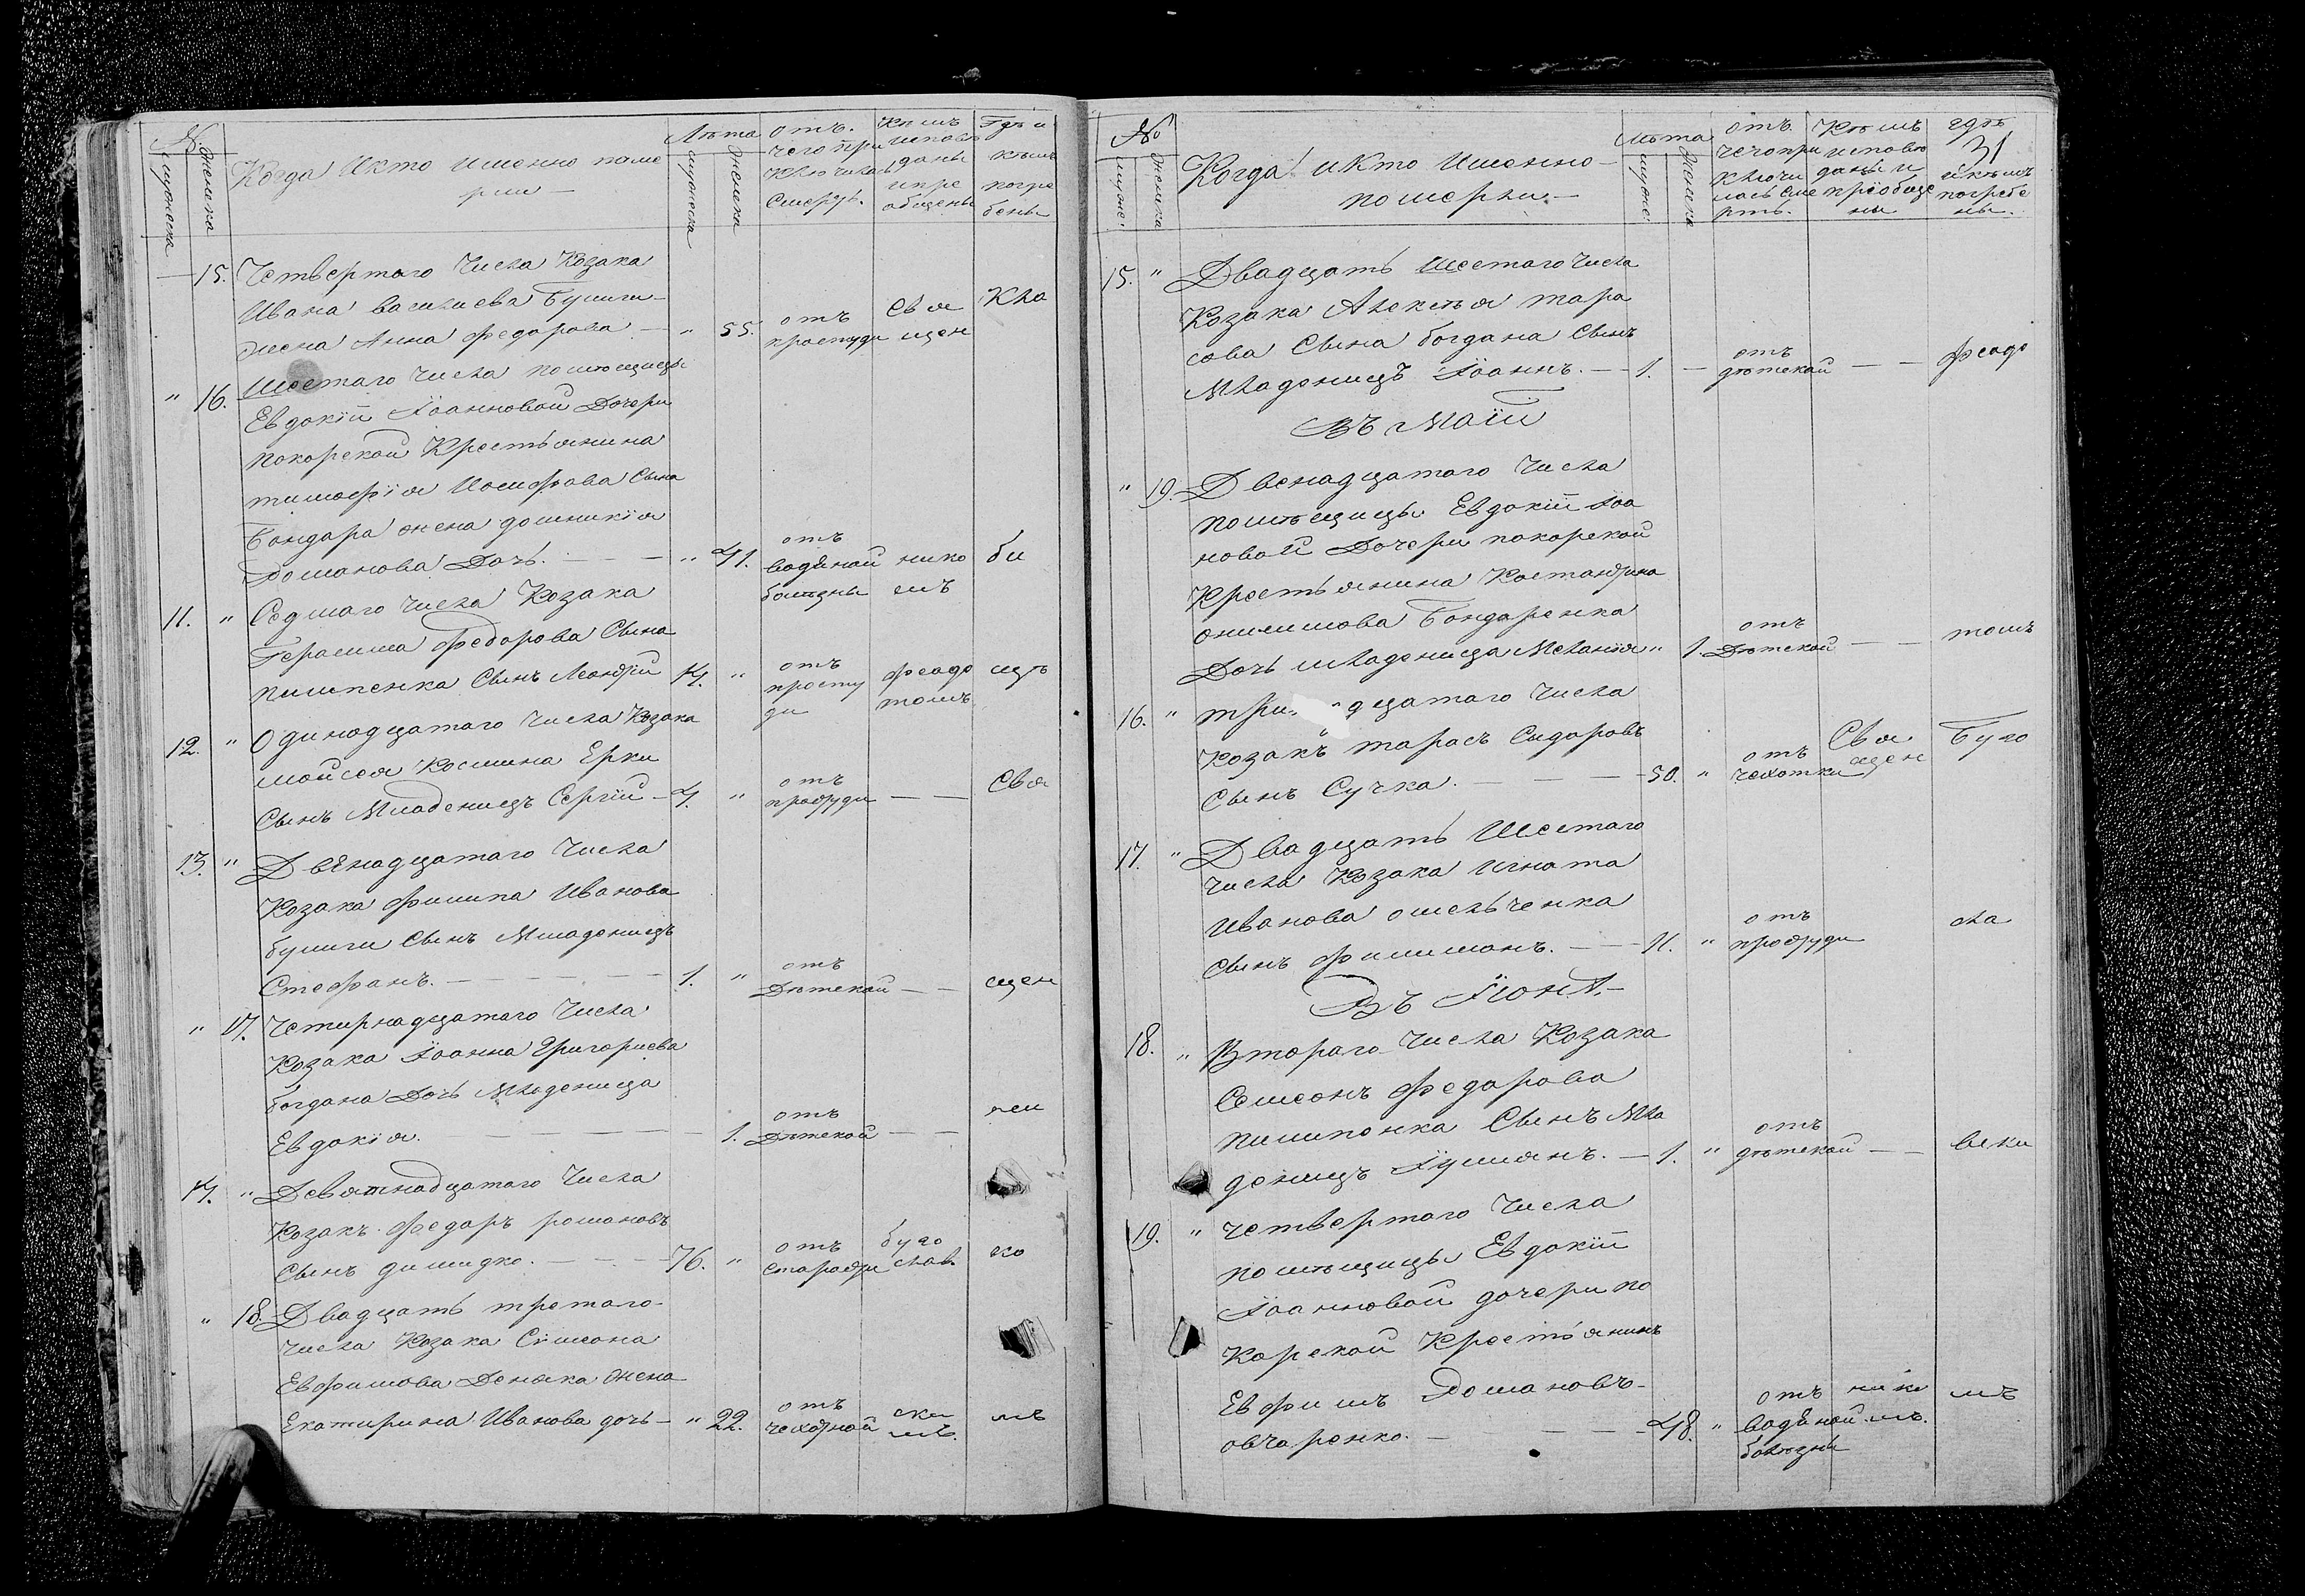 №
мужеска
женска
Когда И кто Именно поме
рли —
Лѣта
мужеска
женска
отъ
чего при
ключилась
Смерть.
Кѣмъ
исповѣ
даны
и прі
общены
Гдѣ и
кѣмъ
погре
бены
— 15. Четвертаго Числа Козака
Ивана василиева Булиги
жена Анна федорова — " 55. отъ простуди Свя щен Кла
" 16. Шестаго числа помѣщицы
Евдокіи Іоанновой Дочери
покорской Крестьянина
тимофія Иосифова Сына
Бондара жена домникія
Романова Дочь. — — " 41. отъ водяной болѣзны нико емъ би
11. " Седмаго числа Козака
Герасима Федорова Сына
пилипенка Сынъ Леонтій 14. " отъ просту ди феодо томъ щѣ
12. " Одинадцатаго числа Козака
мойсея Космина Ерки
Сынъ Младенецъ Сергій — 4. " отъ простуди — — Свя
13. " Двѣнадцатаго Числа
Козака филипа Иванова
булиги Сынъ Младенецъ
Стефанъ. — — — 1. " отъ Дѣтской — — щен
" 17. Четирнадцатаго Числа
Козака Іоанна Григориева
богдана Дочь Младеница
Евдокія. — — — 1. отъ Дѣтской — — ни
14. " Девятнадцатаго Числа
Козакъ федоръ романовъ
Сынъ димидко. — — 76. " отъ старости буго слав. ко
" 18. Двадцать третаго
числа Козака Сімеона
Евфимова Деняка жена
Екатирина Иванова дочь — " 22. отъ чехотной ски мъ. мъ
№
муже.
женска
Когда и Кто Именно
померли. —
Лѣта
муже.
женска
отъ
чего при
ключи
лась сме
рть.
Кѣмъ
исповѣ
даны и
пріобще
ны
гдѣ
31
и кѣмъ
погребе
ны.
15. " Двадцать Шестаго числа
Козака Алексѣя тара
сова Сына богдана Сынъ
Младенецъ Іоаннъ. — 1. — отъ дѣтской — — феодо
Въ Маіи
" 19. Двенадцатаго Числа
помѣщицы Евдокіи Іоа
новой Дочери покорской
Крестьянина Костантина
онисимова Бондаренка
Дочь младеница Меланія " 1. отъ Дѣтской — — томъ
16. " три дцатаго числа
Козакъ тарасъ Сидоровъ
Сынъ Сучка. — — — 50. " отъ чехотки Свя щен Буго
17. " Двадцать Шестаго
числа Козака игната
Иванова омельченка
Сынъ филимонъ. — — 11. " отъ простуди сла
Въ Іюнѣ. —
18. " Втораго Числа Козака
Семеонъ федорова
пилипенка Сынъ Мла
денецъ Іулиянъ. — 1. " отъ дѣтской — — вски
19. " четвертаго Числа
помѣщицы Евдокіи
Іоанновой дочери по
Корской Крестьянинъ
Евфимъ Романовъ
овчаренко. — — — 48. " отъ водяной болѣзны нике мъ. мъ